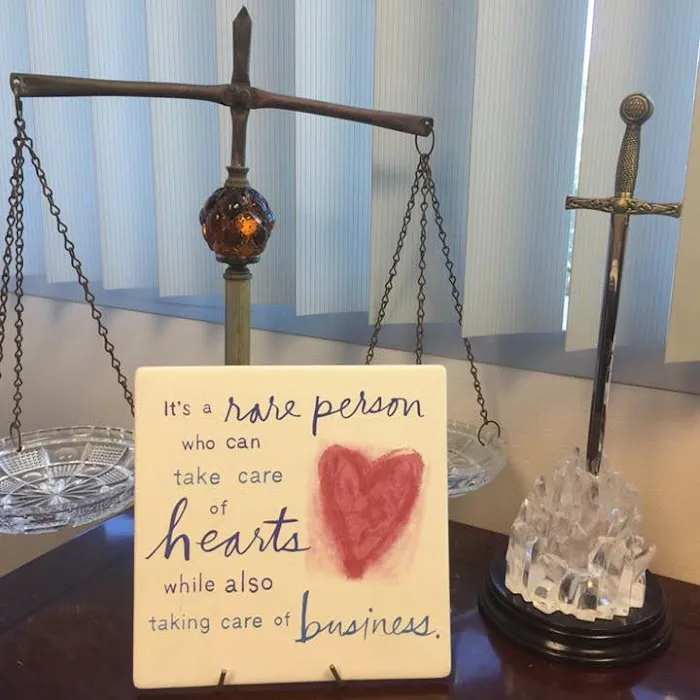 It's a rare person
who can
take care
of
hearts
while also
taking care of business.